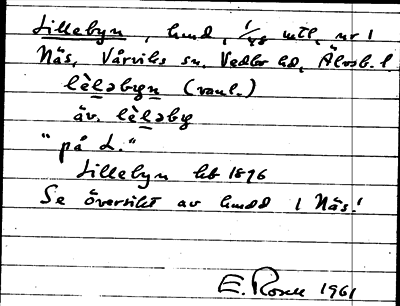 Lillebyn, hmd, 1/48 mtl, nr 1
Näs, Vårviks sn. Vedbo hd, Älvsb. l.
lèləbyn (vanl.)
äv. lèləby
"på L."
Lillebyn kb 1896
Se översikt av hmdd i Näs!
E. Rosell 1961